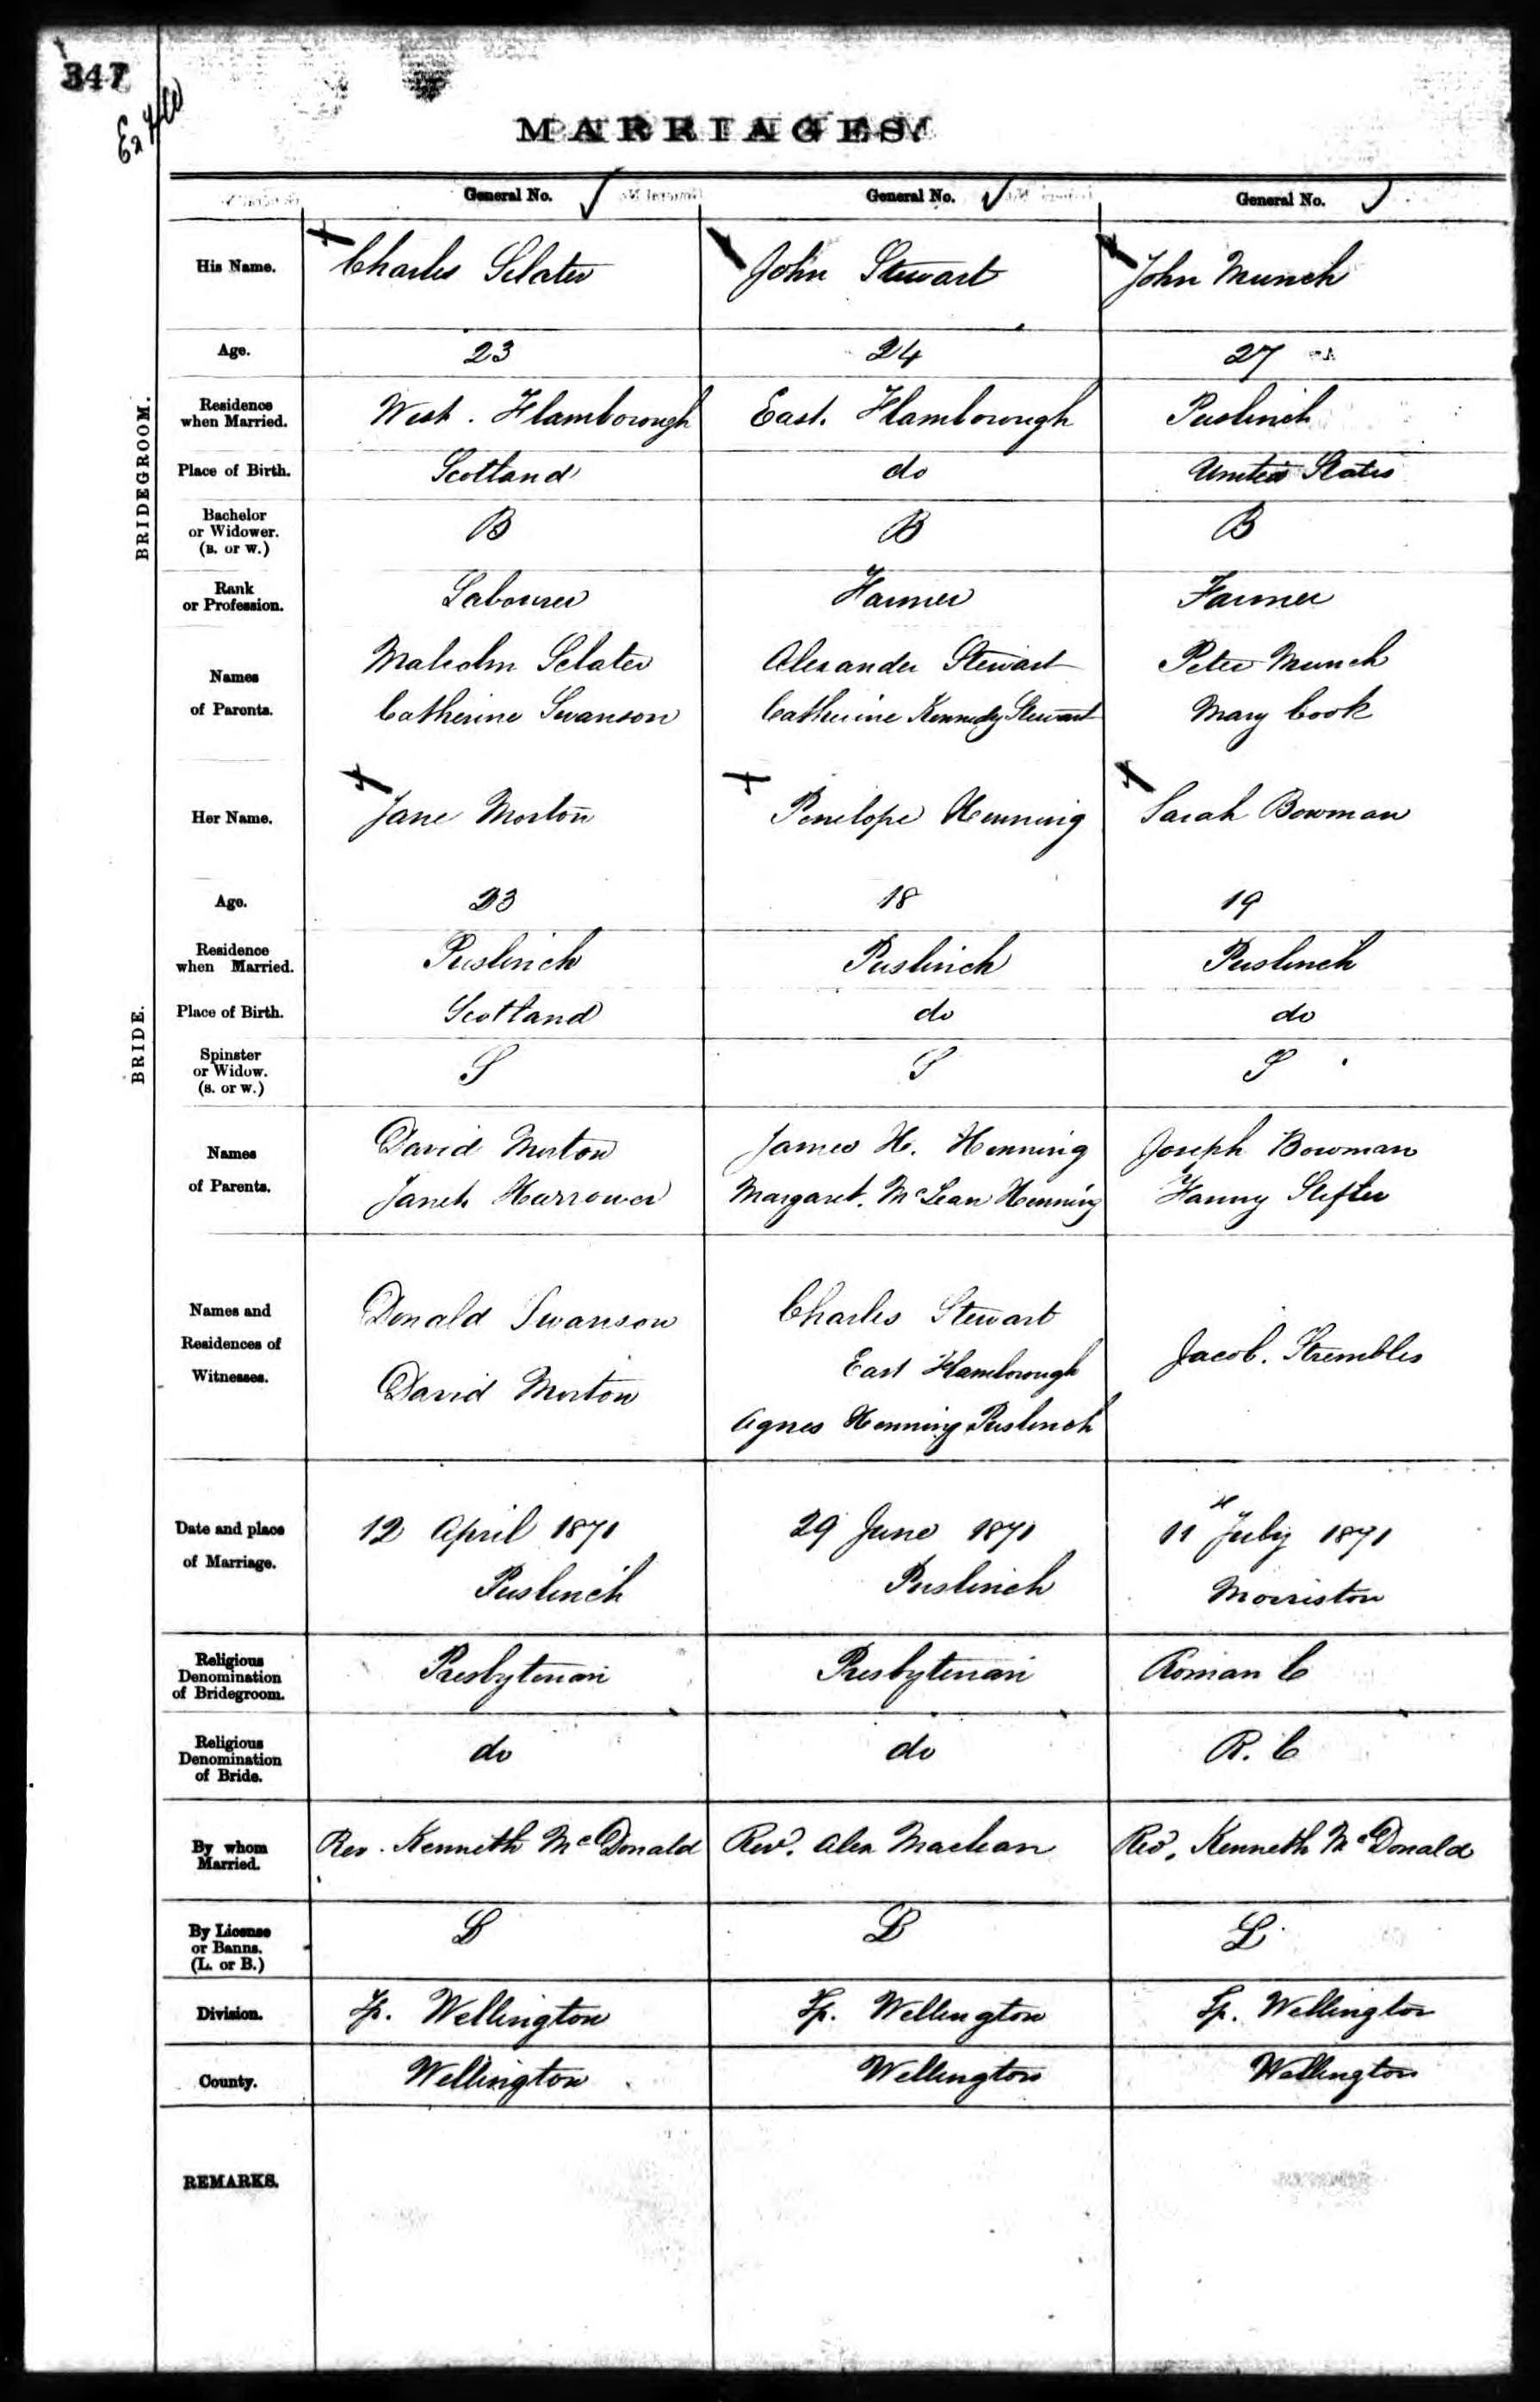 347
MARRIAGES.
General No. General No. General No.
His Name. Charles Sclater John Stewart John Munch
Age. 23 24 27
BRIDEGROOM.
Residence when Married. West. Flamborough East. Flamborough Puslinch
Place of Birth. Scotland do United States
Bachelor or Widower. (B. or W.) B B B
Rank or Profession. Labourer Farmer Farmer
Names of Parents.
Malcolm Sclater Alexander Stewart Peter Munch
Catherine Swanson Catherine Kennedy Stewart Mary Cook
Her Name. Jane Morton Penelope Henning Sarah Bowman
Age. 23 18 19
BRIDE.
Residence when Married. Puslinch Puslinch Puslinch
Place of Birth. Scotland do do
Spinster or Widow. (S. or W.) S S S
Names of Parents.
David Morton James H. Henning Joseph Bowman
Janet Harrower Margaret. McLean Henning Fanny Slifter
Names and Residences of Witnesses.
Donald Swanson Charles Stewart Jacob. Strembles
East Flamborough
David Morton
Agnes Henning Puslinch
Date and place of Marriage.
12 April 1871 29 June 1871 11 July 1871
Puslinch Puslinch Morriston
Religious Denomination of Bridegroom. Presbyterian Presbyterian Roman C
Religious Denomination of Bride. do do R. C
By whom Married. Rev. Kenneth McDonald Rev. Alex Maclean Rev. Kenneth McDonald
By License or Banns. (L. or B.) L B L
Division. Tp. Wellington Tp. Wellington Tp. Wellington
County. Wellington Wellington Wellington
REMARKS.